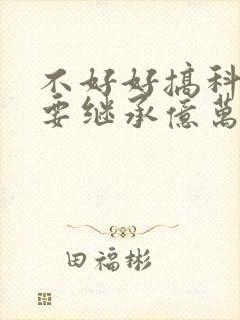 不好好搞科
要继承億萬
田福彬